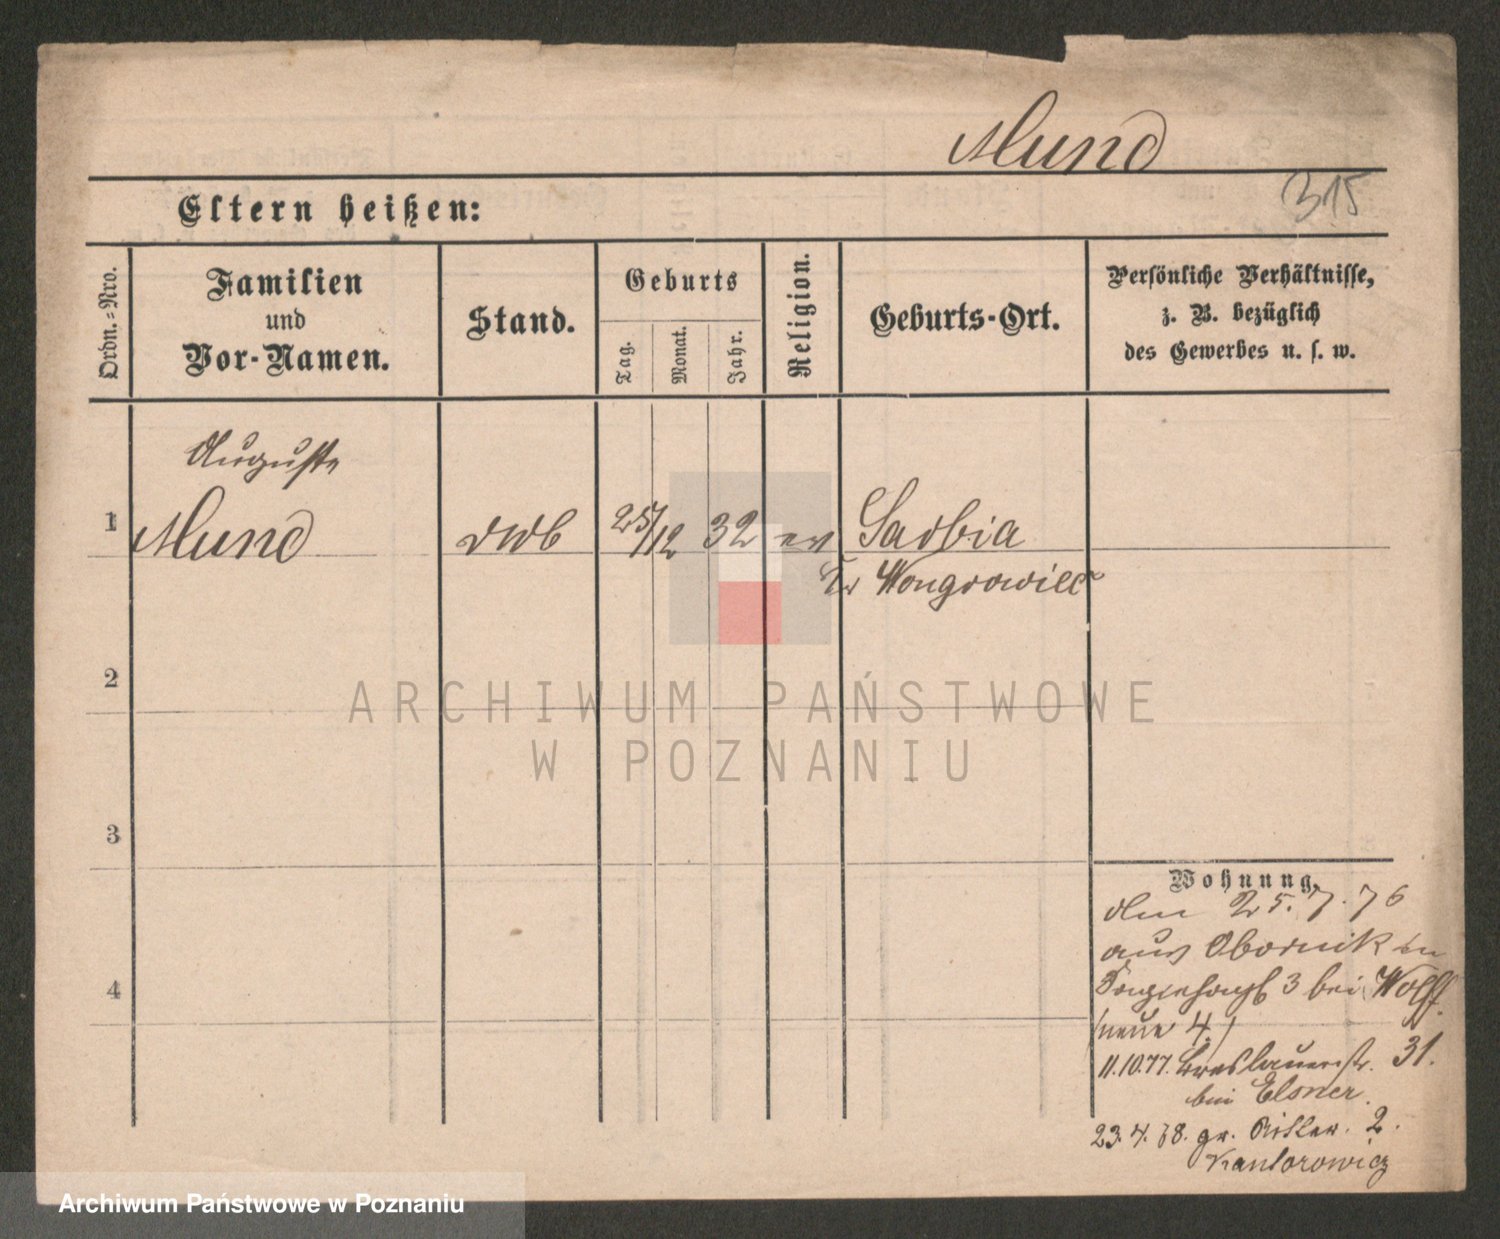 Mund
315
Eltern heißen:
Ordn.=Nro.
Familien
und
Vor-Namen.
Stand.
Geburts
Tag.
Monat.
Jahr.
Religion.
Geburts-Ort.
Persönliche Verhältnisse,
z. B. bezüglich
des Gewerbes u. s. w.
Auguste
1 Mund 25/12 32 ev Sarbia
Kr Wongrowiec
2
3
4
Wohnung,
den 25.7.76
aus Obornik
3 bei Wolff.
(neue 4.)
11.10.77. Breslauerstr. 31.
bei Elsner.
23.4.78. gr. Ritter. 2.
Kantorowicz
ARCHIWUM PAŃSTWOWE
W POZNANIU
Archiwum Państwowe w Poznaniu